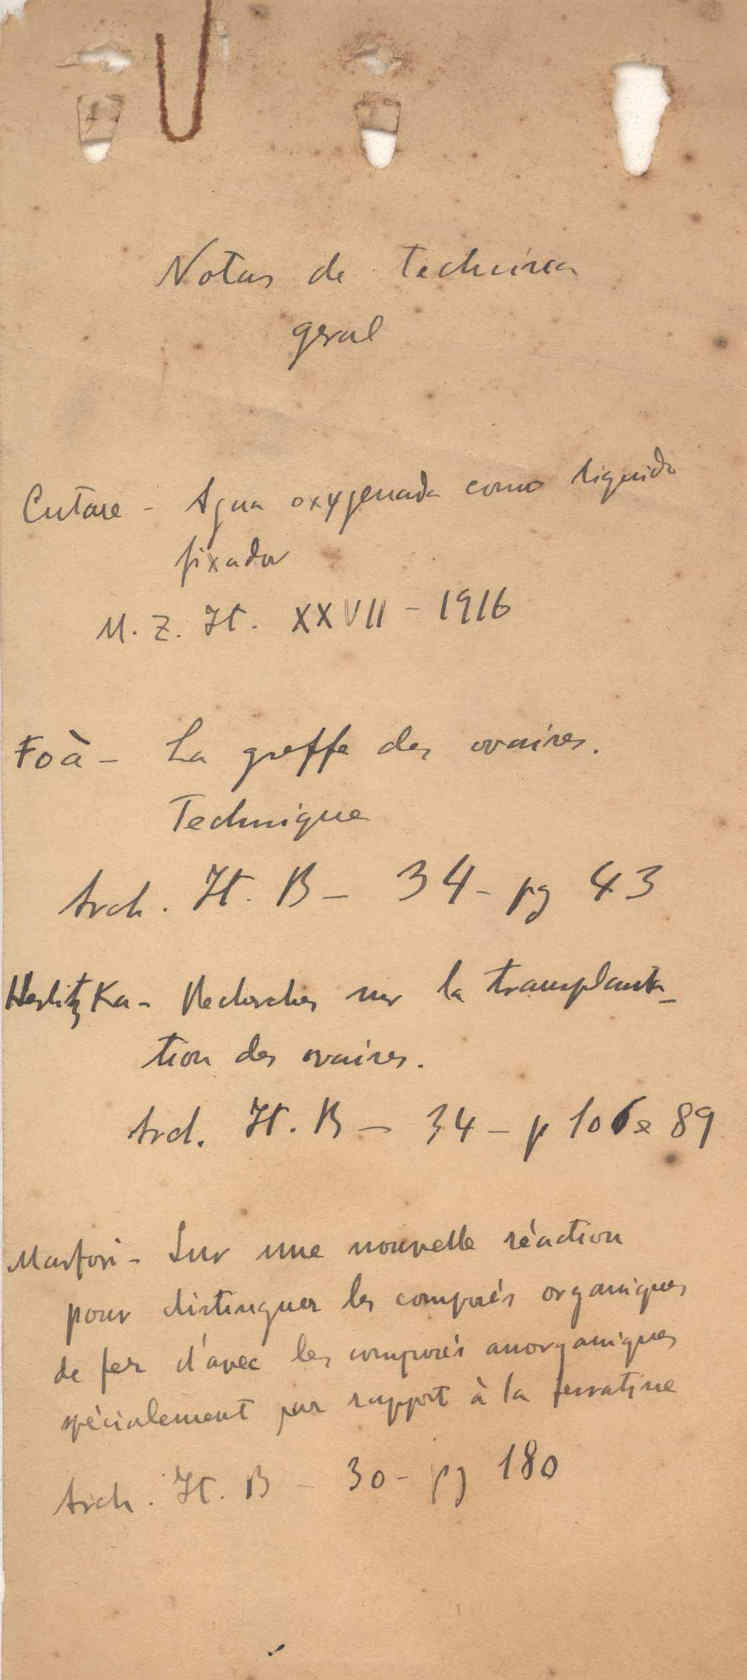 Notas de technica
geral
Cutore - Agua oxygenada como liquido
fixador
M. Z. It. XXVII - 1916
Foà - La greffe des ovaires.
Technique
Arch. It. B - 34 - pg 43
Herlitzka - Recherches sur la transplanta-
tion des ovaires.
Arch. It. B - 34 - p 106 e 89
Marfori - Sur une nouvelle réaction
pour distinguer les composés organiques
de fer d'avec les composés anorganiques
spécialement par rapport à la ferratine
Arch. It. B - 30 - pg 180